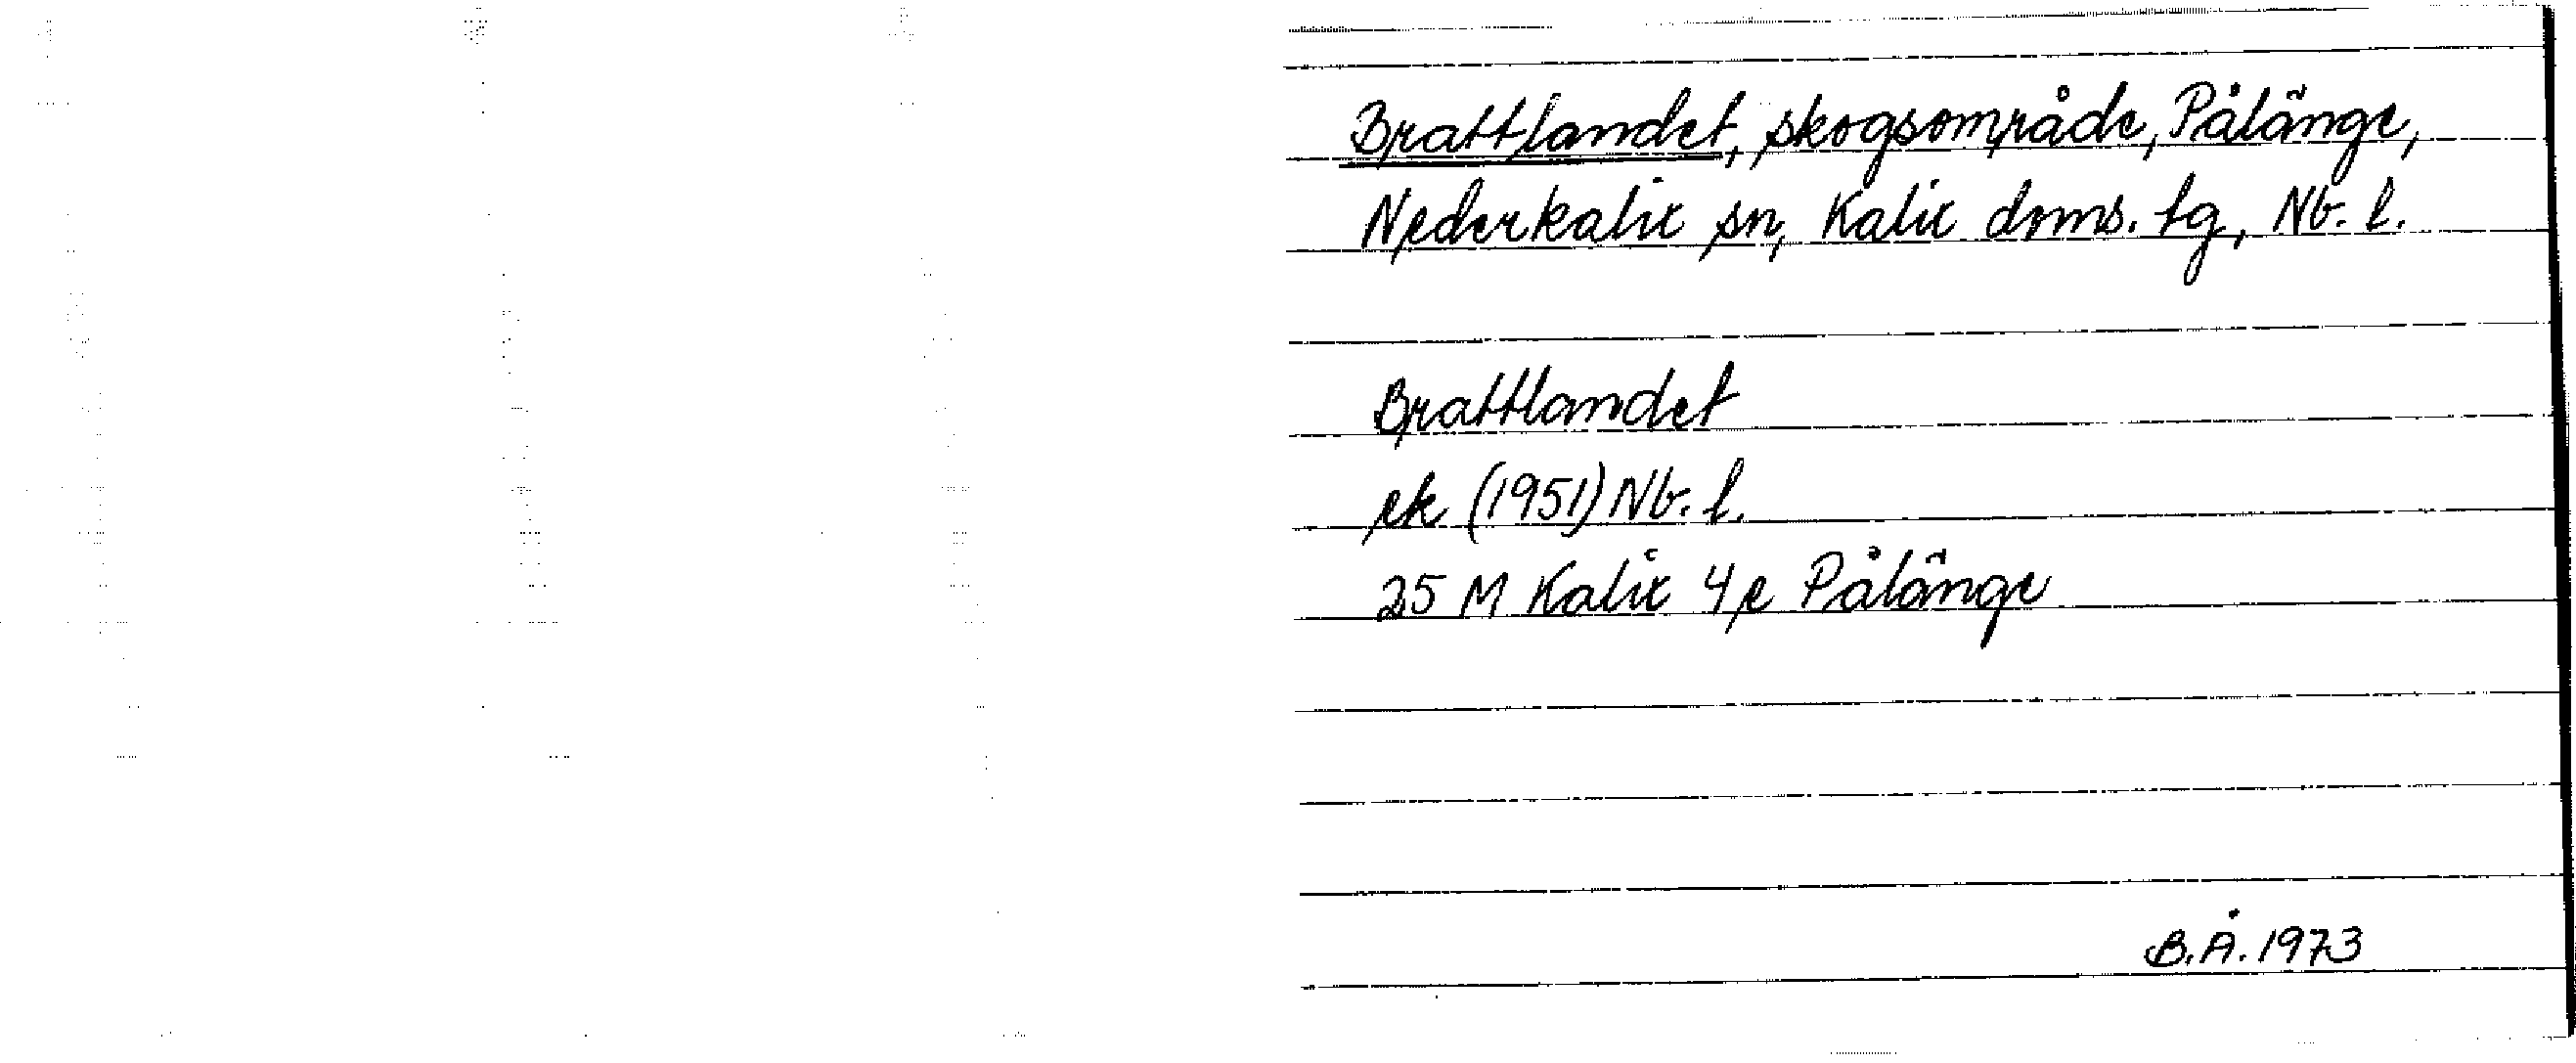 Brattlandet, skogsområde, Pålänge,
Nederkalix sn, Kalix doms. tg, Nb. l.
Brattlandet
ek (1951) Nb. l.
25 M Kalix 4 e Pålänge
B.Å. 1973